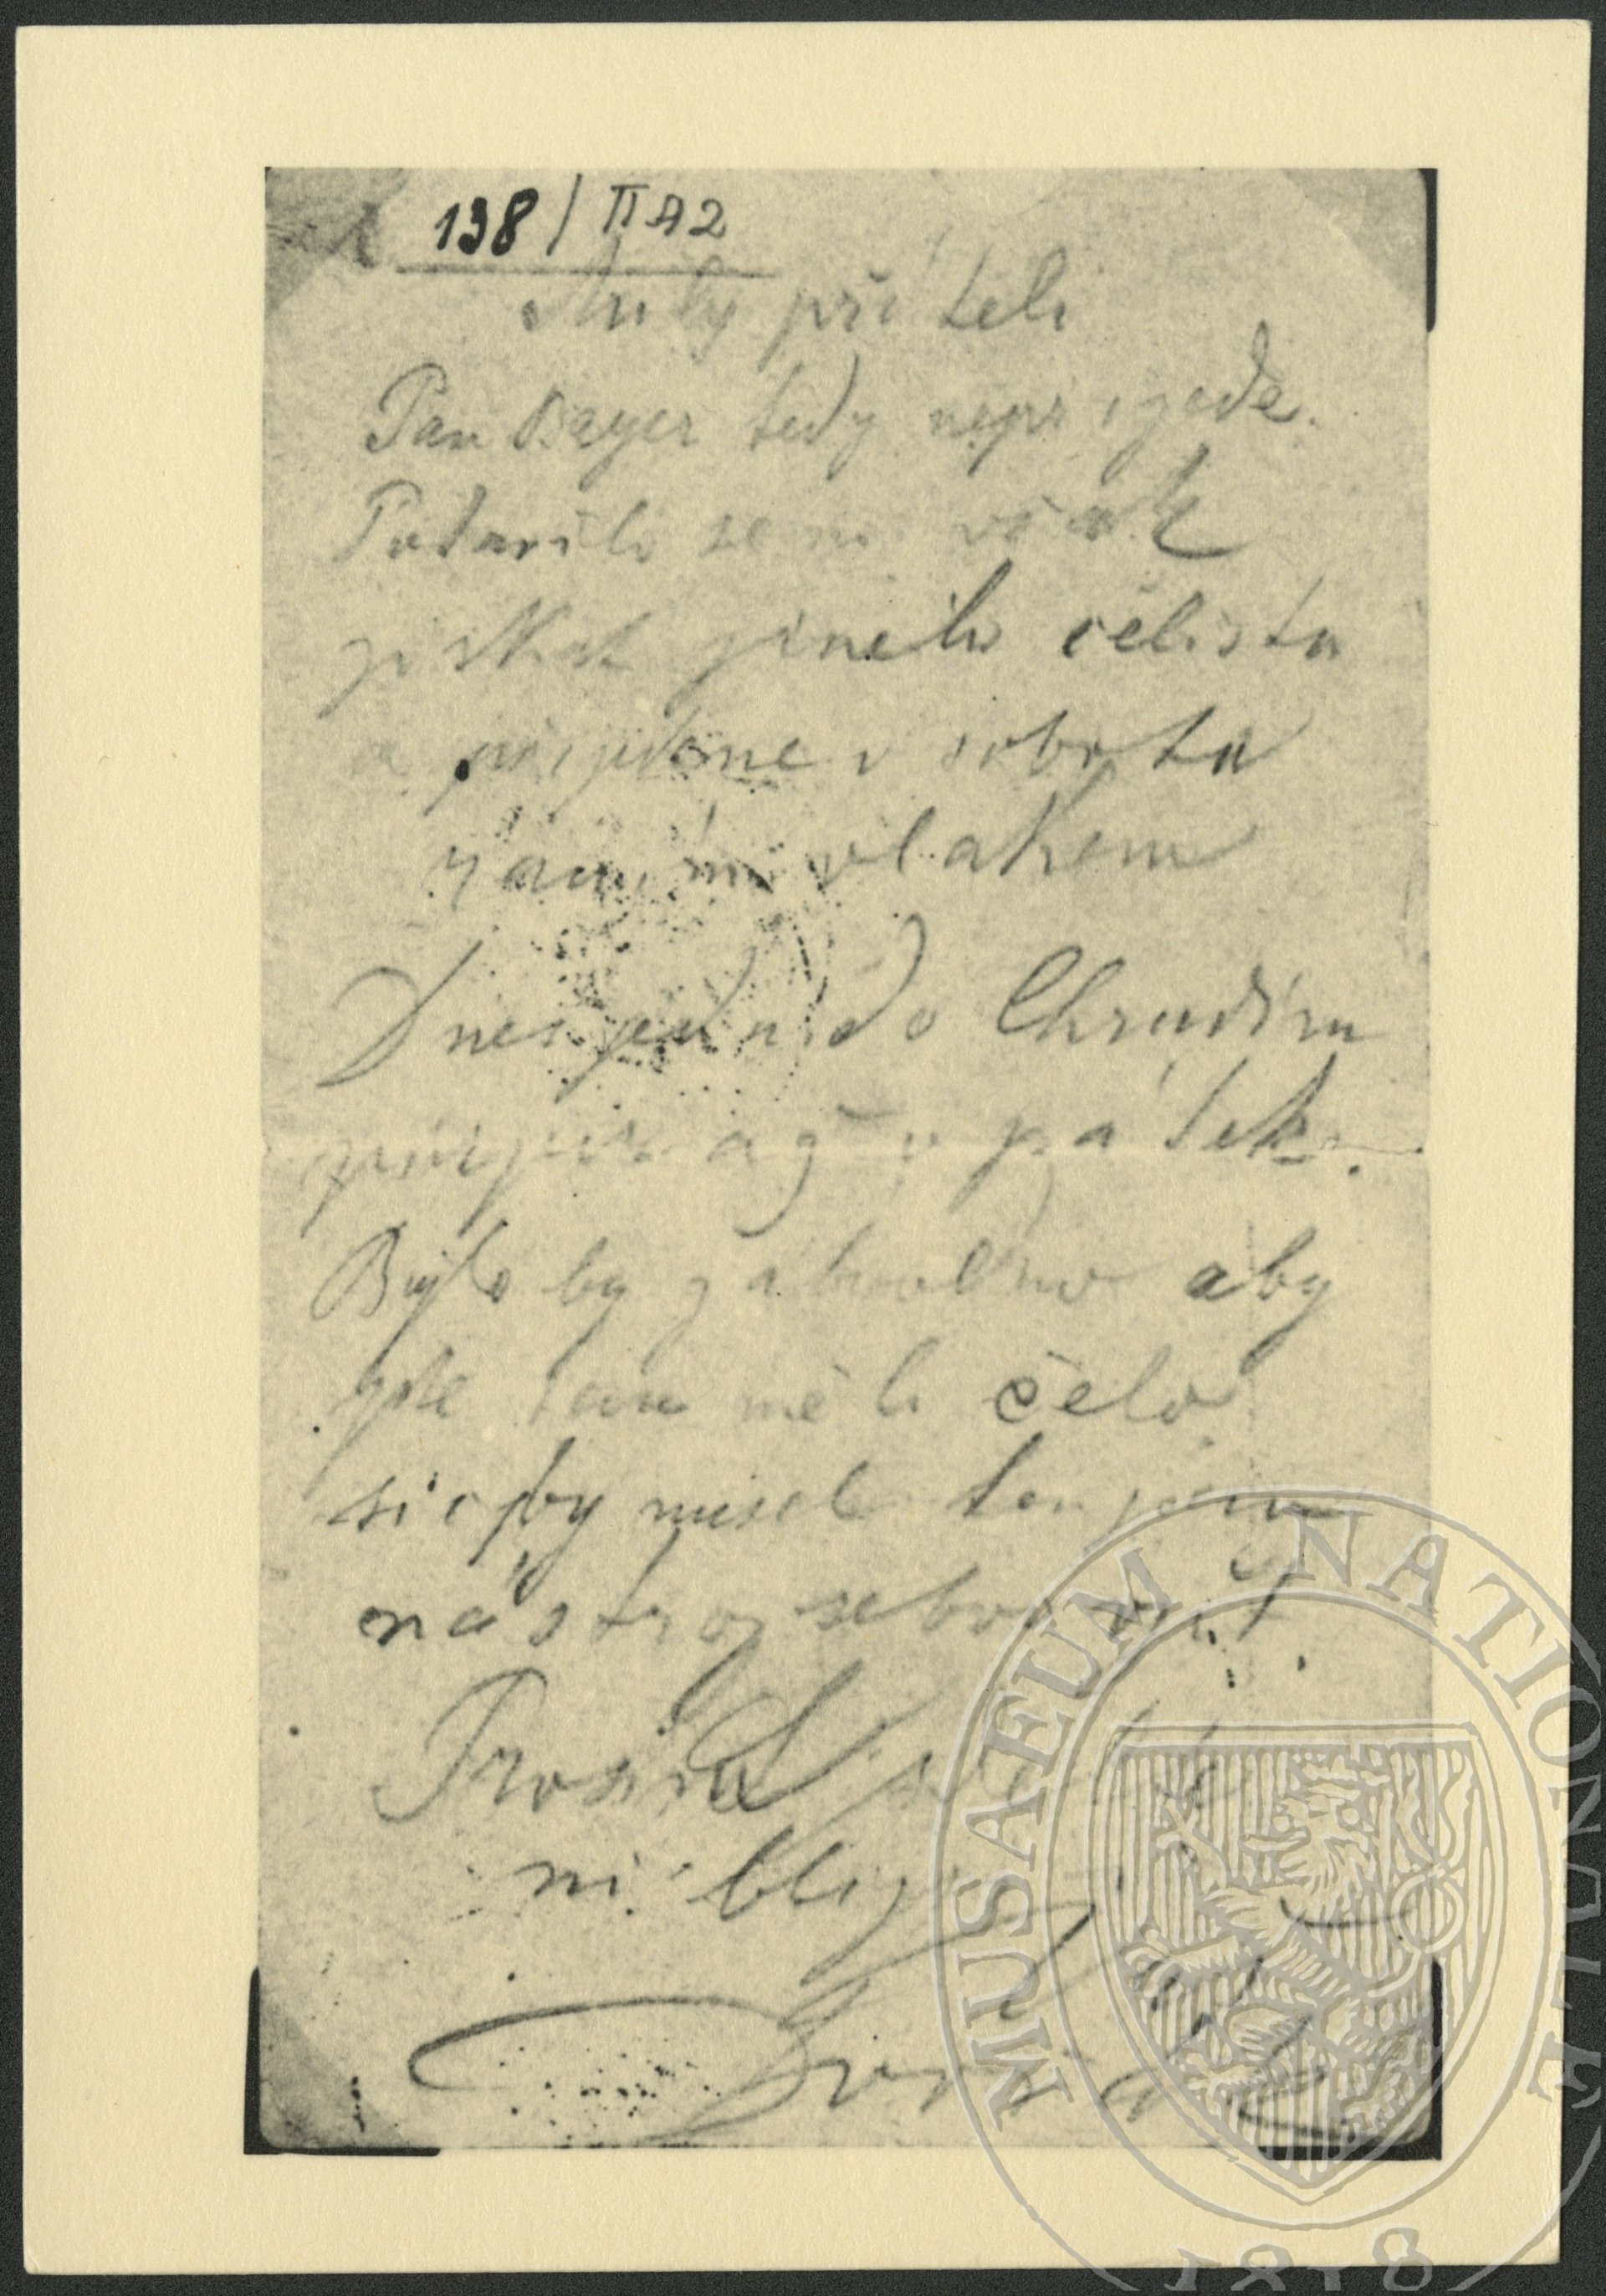 138/ II A2
Milý příteli
Pan Bayer tedy nepřijede.
Podařilo se mi však
získat jiného čelistu
a přijedeme v sobotu
ranním vlakem
Dnes jedu do Chrudim
přijedu až v pátek.
Bylo by záhodno aby
zde tam měli čelo
sic by musel ten pán
nástroj sebou vzít.
Prosím
mi
Dvořák
MUSAEUM NATIONALE
1818